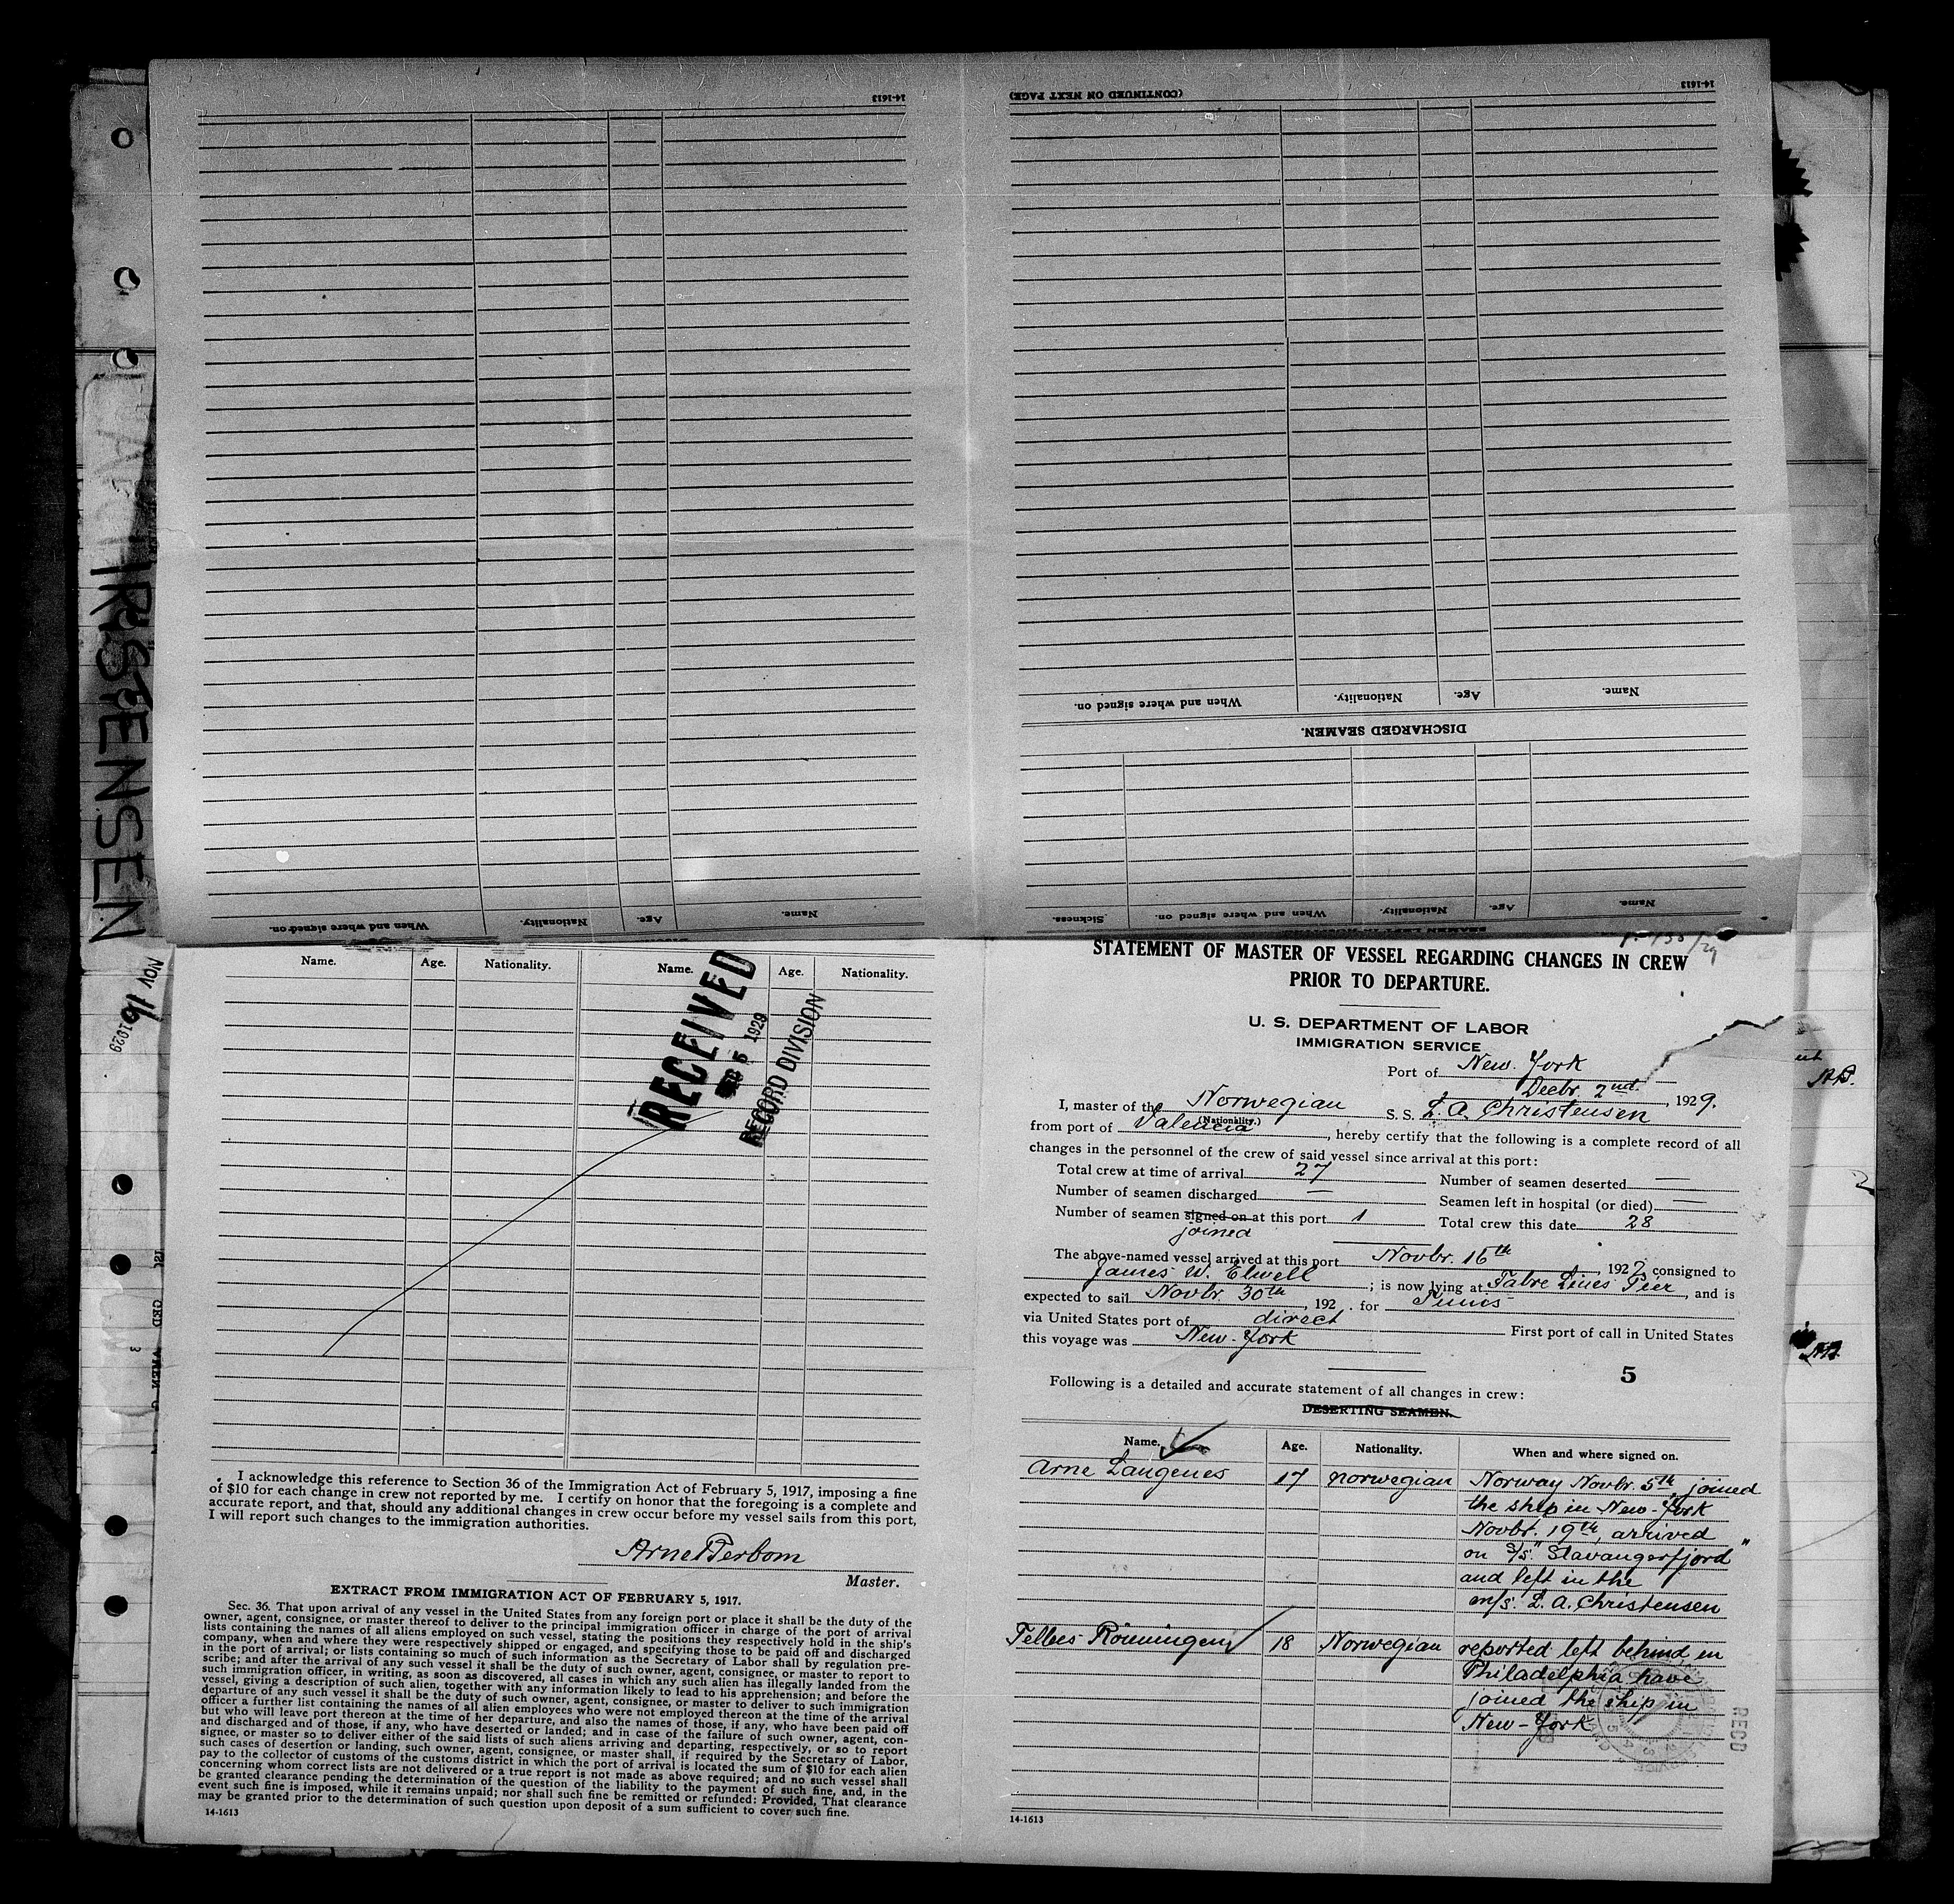 14-1613
(CONTINUED ON NEXT PAGE)
14-1613
When and where signed on. Nationality. Age. Name.
DISCHARGED SEAMEN.
When and where signed on. Nationality. Age. Name.
Sickness. When and where signed on. Nationality. Age. Name.
NOV 16 1929
Name. Age. Nationality. Name. Age. Nationality.
RECEIVED
DEC 5 1929
RECORD DIVISION
I acknowledge this reference to Section 36 of the Immigration Act of February 5, 1917, imposing a fine
of $10 for each change in crew not reported by me. I certify on honor that the foregoing is a complete and
accurate report, and that, should any additional changes in crew occur before my vessel sails from this port,
I will report such changes to the immigration authorities.
Master.
EXTRACT FROM IMMIGRATION ACT OF FEBRUARY 5, 1917.
Sec. 36. That upon arrival of any vessel in the United States from any foreign port or place it shall be the duty of the
owner, agent, consignee, or master thereof to deliver to the principal immigration officer in charge of the port of arrival
lists containing the names of all aliens employed on such vessel, stating the positions they respectively hold in the ship's
company, when and where they were respectively shipped or engaged, and specifying those to be paid off and discharged
in the port of arrival; or lists containing so much of such information as the Secretary of Labor shall by regulation pre-
scribe; and after the arrival of any such vessel it shall be the duty of such owner, agent, consignee, or master to report to
such immigration officer, in writing, as soon as discovered, all cases in which any such alien has illegally landed from the
vessel, giving a description of such alien, together with any information likely to lead to his apprehension; and before the
departure of any such vessel it shall be the duty of such owner, agent, consignee, or master to deliver to such immigration
officer a further list containing the names of all alien employees who were not employed thereon at the time of the arrival
but who will leave port thereon at the time of her departure, and also the names of those, if any, who have been paid off
and discharged and of those, if any, who have deserted or landed; and in case of the failure of such owner, agent, con-
signee, or master so to deliver either of the said lists of such aliens arriving and departing, respectively, or so to report
such cases of desertion or landing, such owner, agent, consignee, or master shall, if required by the Secretary of Labor,
pay to the collector of customs of the customs district in which the port of arrival is located the sum of $10 for each alien
concerning whom correct lists are not delivered or a true report is not made as above required; and no such vessel shall
be granted clearance pending the determination of the question of the liability to the payment of such fine, and, in the
event such fine is imposed, while it remains unpaid; nor shall such fine be remitted or refunded: Provided, That clearance
may be granted prior to the determination of such question upon deposit of a sum sufficient to cover such fine.
14-1613
STATEMENT OF MASTER OF VESSEL REGARDING CHANGES IN CREW
PRIOR TO DEPARTURE.
U. S. DEPARTMENT OF LABOR
IMMIGRATION SERVICE
Port of New York
Decbr. 2nd, 1929.
I, master of the Norwegian S. S. L. A. Christensen
(Nationality.)
from port of Valencia, hereby certify that the following is a complete record of all
changes in the personnel of the crew of said vessel since arrival at this port:
Total crew at time of arrival 27 Number of seamen deserted —
Number of seamen discharged — Seamen left in hospital (or died) —
Number of seamen signed on at this port 1 Total crew this date 28
joined
The above-named vessel arrived at this port Novbr. 16th, 192 consigned to
James W. Elwell; is now lying at Fabre Lines Pier, and is
expected to sail Novbr. 30th, 192 . for Tunis
via United States port of direct First port of call in United States
this voyage was New-York
5
Following is a detailed and accurate statement of all changes in crew:
DESERTING SEAMEN.
Name. Age. Nationality. When and where signed on.
Arne Langenes 17 norwegian Norway Novbr. 5th, joined
the ship in New-York
Novbr. 19th, arrived
on S/S. "Stavangerfjord"
and left in the
m/s. L. A. Christensen
Rönningen 18 Norwegian reported left behind in
Philadelphia have
joined the ship in
New-York
RECD
14-1613